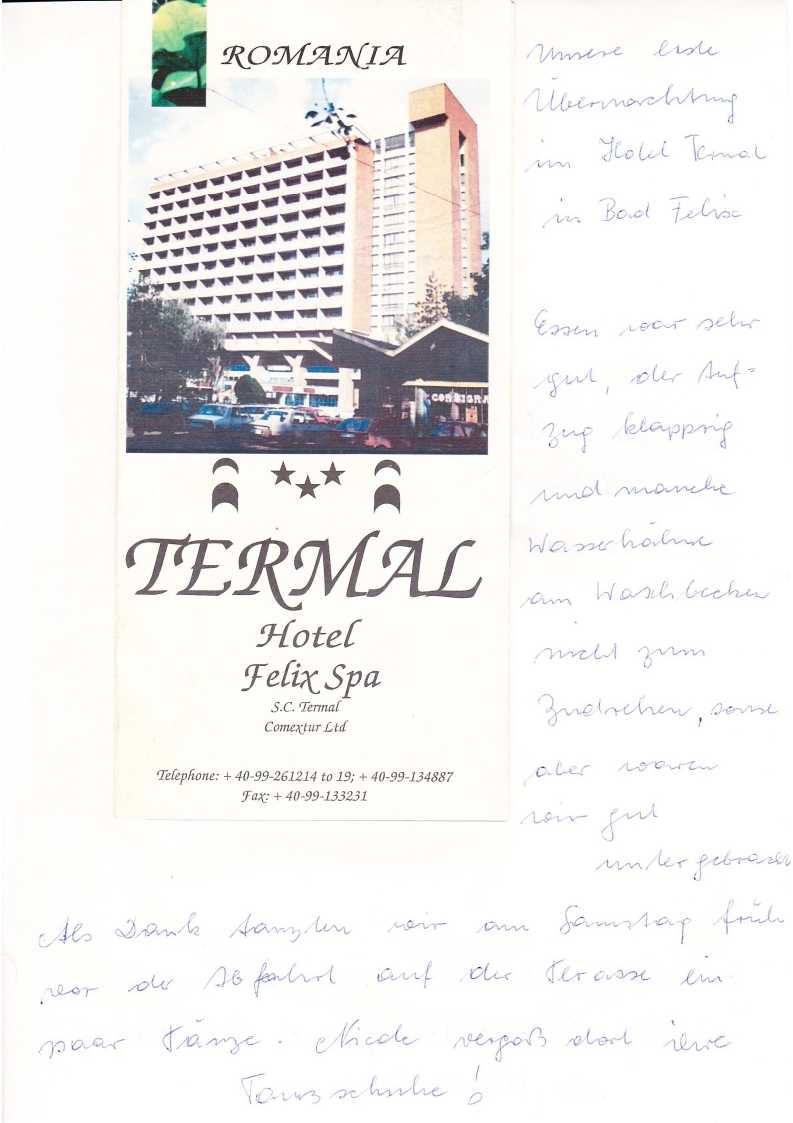 ROMANIA
CONSIGNA
TERMAL
Hotel
Felix Spa
S.C. Termal
Comextur Ltd
Telephone: + 40-99-261214 to 19; + 40-99-134887
Fax: + 40-99-133231
Unsere erste
Übernachtung
im Hotel Termal
in Bad Felix
Essen war sehr
gut, der Auf=
zug klapprig
und manche
Wasserhähne
am Waschbecken
nicht zum
Zudrehen, sonst
aber waren
wir gut
untergebracht
Als Dank tanzten wir am Samstag früh
vor der Abfahrt auf der Terasse ein
paar Tänze. Nicole vergaß dort ihre
Tanzschuhe!